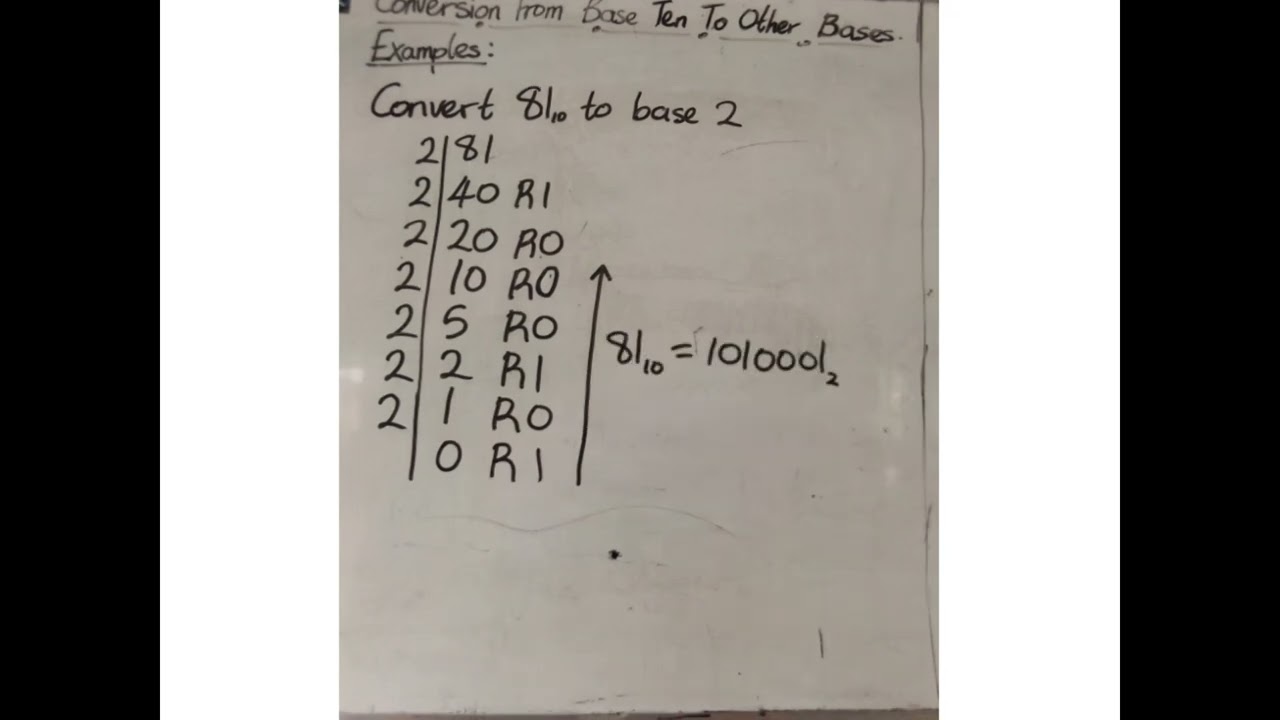 Conversion From Base Ten To Other Bases.
Examples:
Convert 81₁₀ to base 2
2|81
2|40 R1
2|20 R0
2|10 R0
2|5 R0
2|2 R1
2|1 R0
|0 R1
81₁₀ = 1010001₂